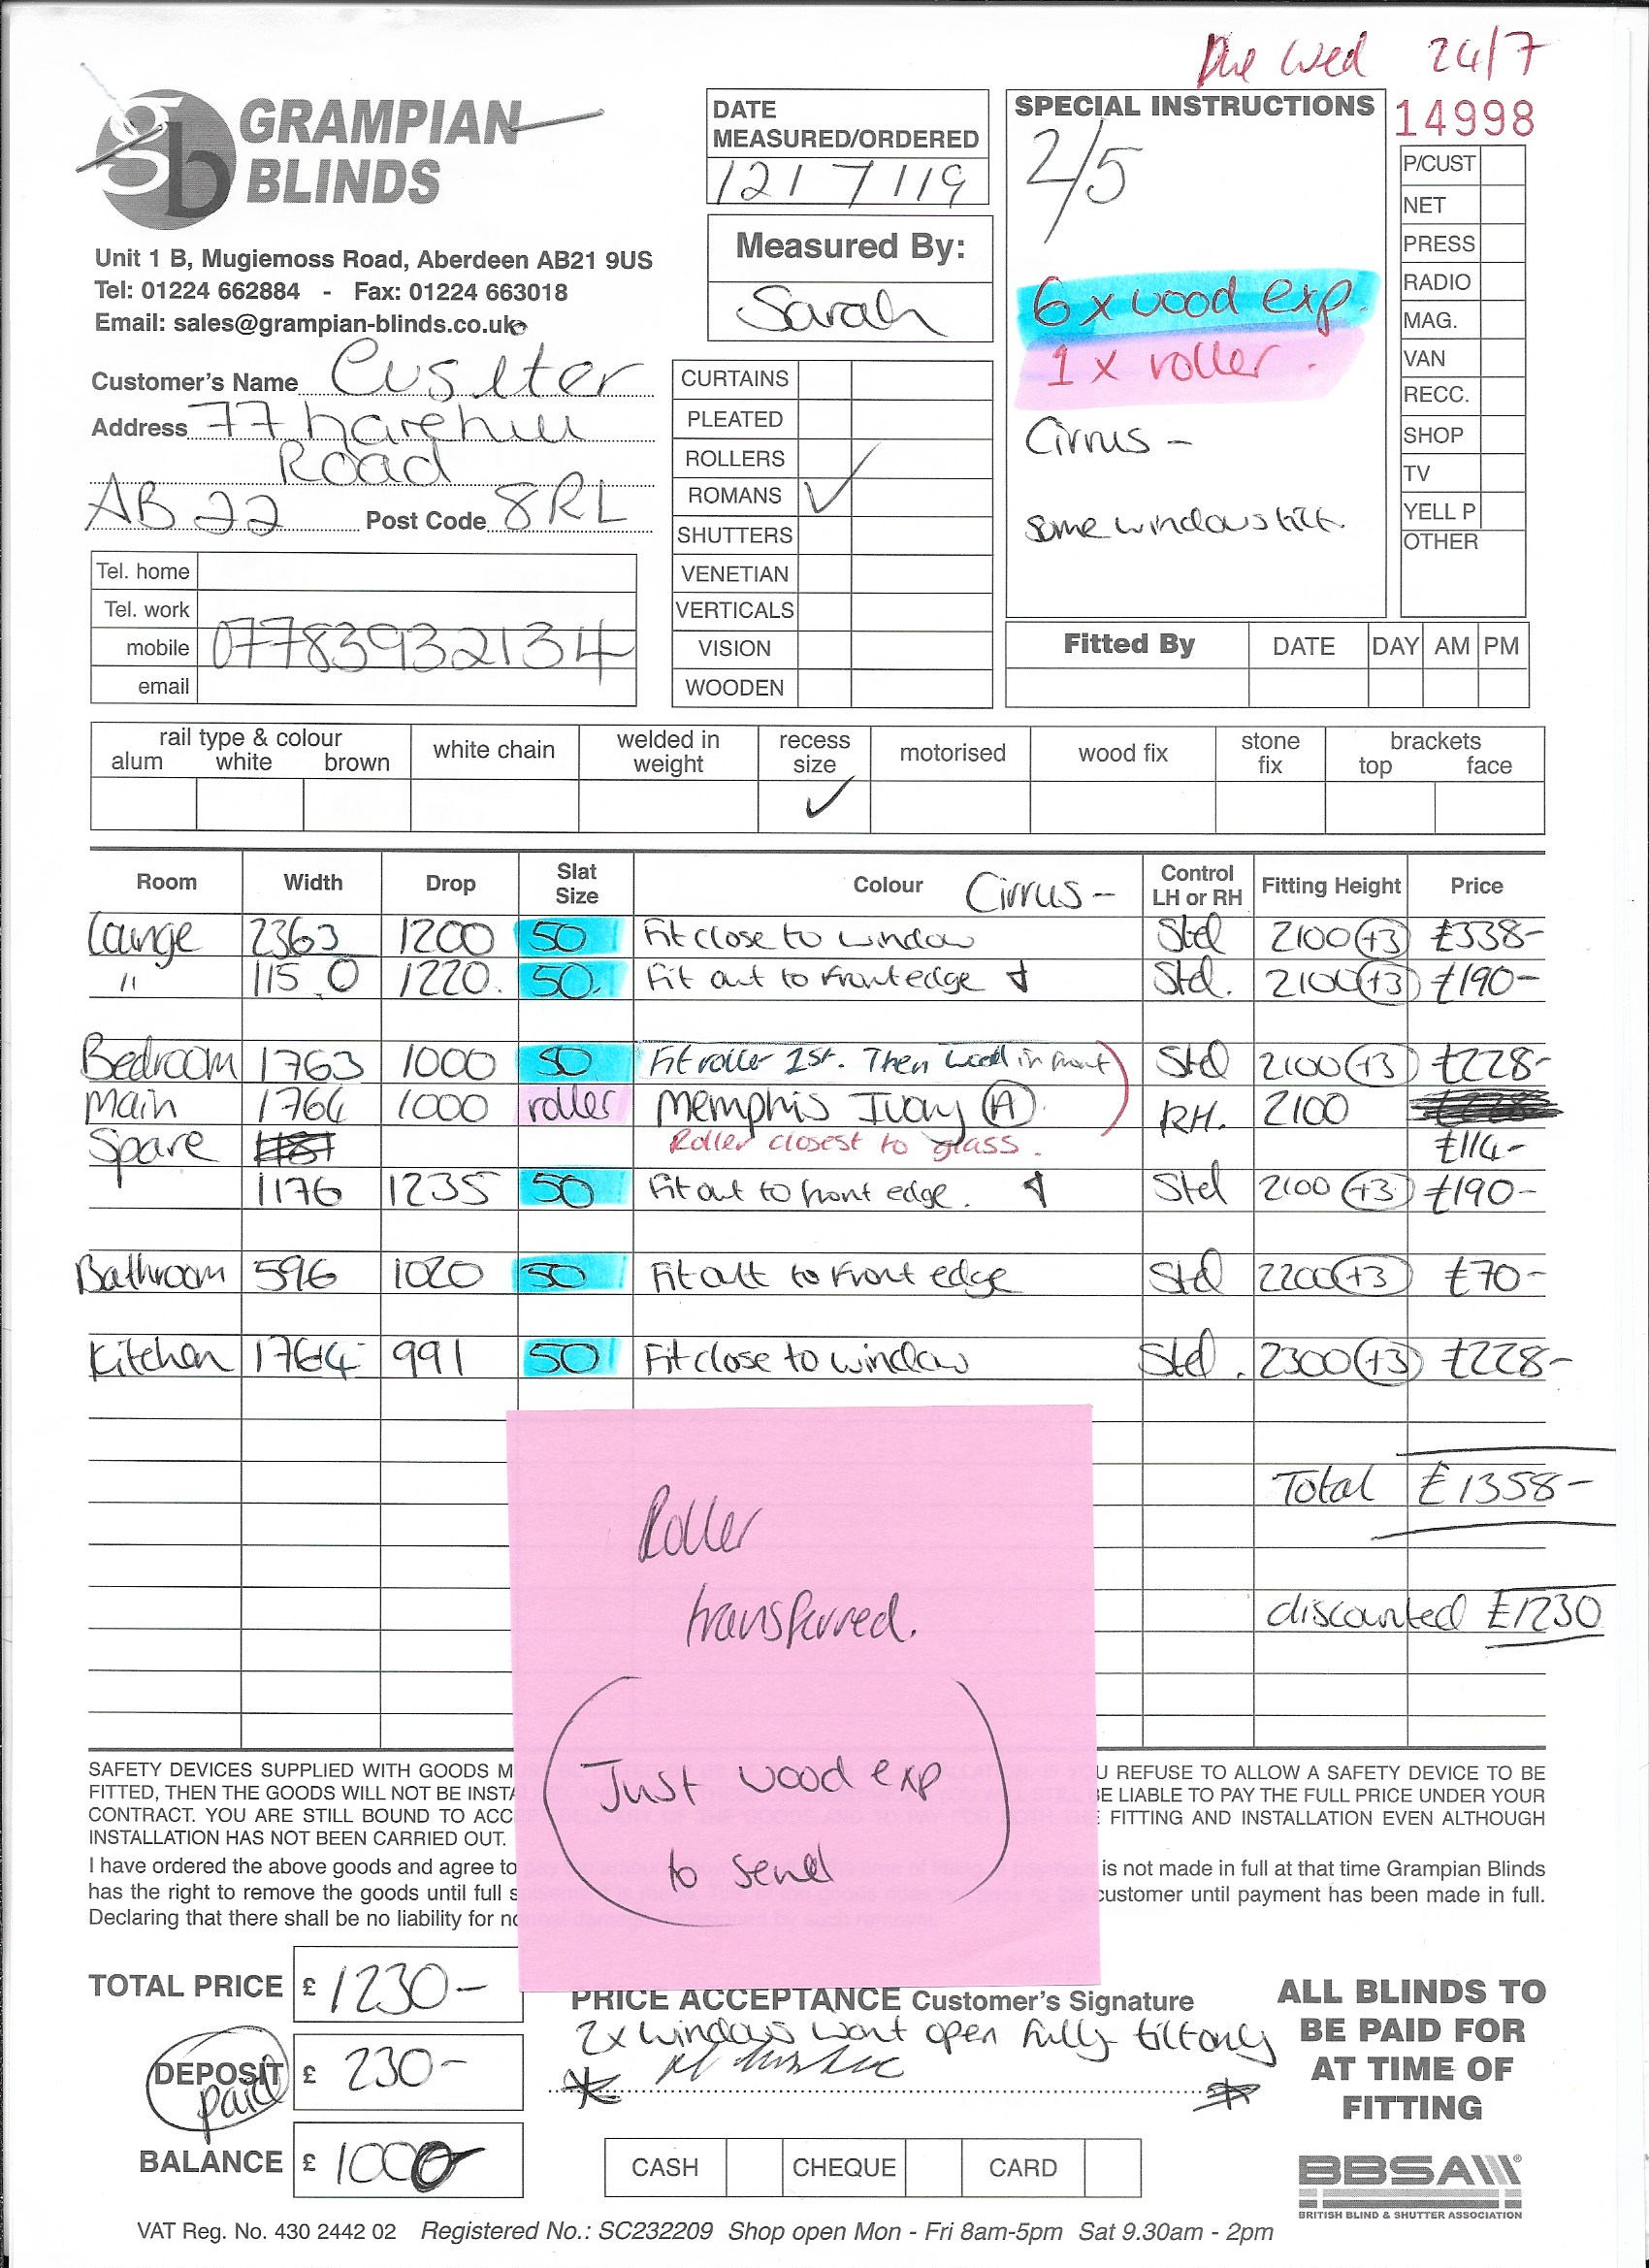 Due Wed 24/7
GRAMPIAN
BLINDS
gb
Unit 1 B, Mugiemoss Road, Aberdeen AB21 9US
Tel: 01224 662884 - Fax: 01224 663018
Email: sales@grampian-blinds.co.uk
Customer's Name Cuslter
Address 77 harehill
Road
AB22 Post Code 8RL
Tel. home
Tel. work
mobile 07783932134
email
DATE
MEASURED/ORDERED
12/7/19
Measured By:
Sarah
CURTAINS
PLEATED
ROLLERS
ROMANS ✓
SHUTTERS
VENETIAN
VERTICALS
VISION
WOODEN
SPECIAL INSTRUCTIONS
2/5
6 x wood exp.
1 x roller.
Cirrus -
some windows tilt.
14998
P/CUST
NET
PRESS
RADIO
MAG.
VAN
RECC.
SHOP
TV
YELL P
OTHER
Fitted By DATE DAY AM PM
rail type & colour
alum white brown
white chain
welded in
weight
recess
size
✓
motorised
wood fix
stone
fix
brackets
top face
Room Width Drop Slat Size Colour Cirrus - Control LH or RH Fitting Height Price
Lounge 2363 1200 50 Fit close to window Std 2100 +3 £338-
" 1150 1220. 50. Fit out to front edge Std. 2100 +3 £190-
Bedroom 1763 1000 50 Fit roller 1st. Then wood in front Std 2100 +3 £228-
Main 1764 1000 roller Memphis Ivory (A) RH. 2100
Spare Roller closest to glass. £114-
1176 1235 50 Fit out to front edge. Std 2100 +3 £190-
Bathroom 596 1020 50 Fit out to front edge Std 2200 +3 £70-
Kitchen 1764 991 50 Fit close to window Std. 2300 +3 £228-
Total £1358-
discounted £1230
Roller
transferred.
(Just wood exp
to send)
SAFETY DEVICES SUPPLIED WITH GOODS M U REFUSE TO ALLOW A SAFETY DEVICE TO BE
FITTED, THEN THE GOODS WILL NOT BE INSTA BE LIABLE TO PAY THE FULL PRICE UNDER YOUR
CONTRACT. YOU ARE STILL BOUND TO ACC FITTING AND INSTALLATION EVEN ALTHOUGH
INSTALLATION HAS NOT BEEN CARRIED OUT.
I have ordered the above goods and agree to is not made in full at that time Grampian Blinds
has the right to remove the goods until full s customer until payment has been made in full.
Declaring that there shall be no liability for no
TOTAL PRICE £ 1230-
DEPOSIT £ 230-
paid
BALANCE £ 1000
PRICE ACCEPTANCE Customer's Signature
2x windows wont open fully tilt only
CASH CHEQUE CARD
ALL BLINDS TO
BE PAID FOR
AT TIME OF
FITTING
BBSA
BRITISH BLIND & SHUTTER ASSOCIATION
VAT Reg. No. 430 2442 02 Registered No.: SC232209 Shop open Mon - Fri 8am-5pm Sat 9.30am - 2pm